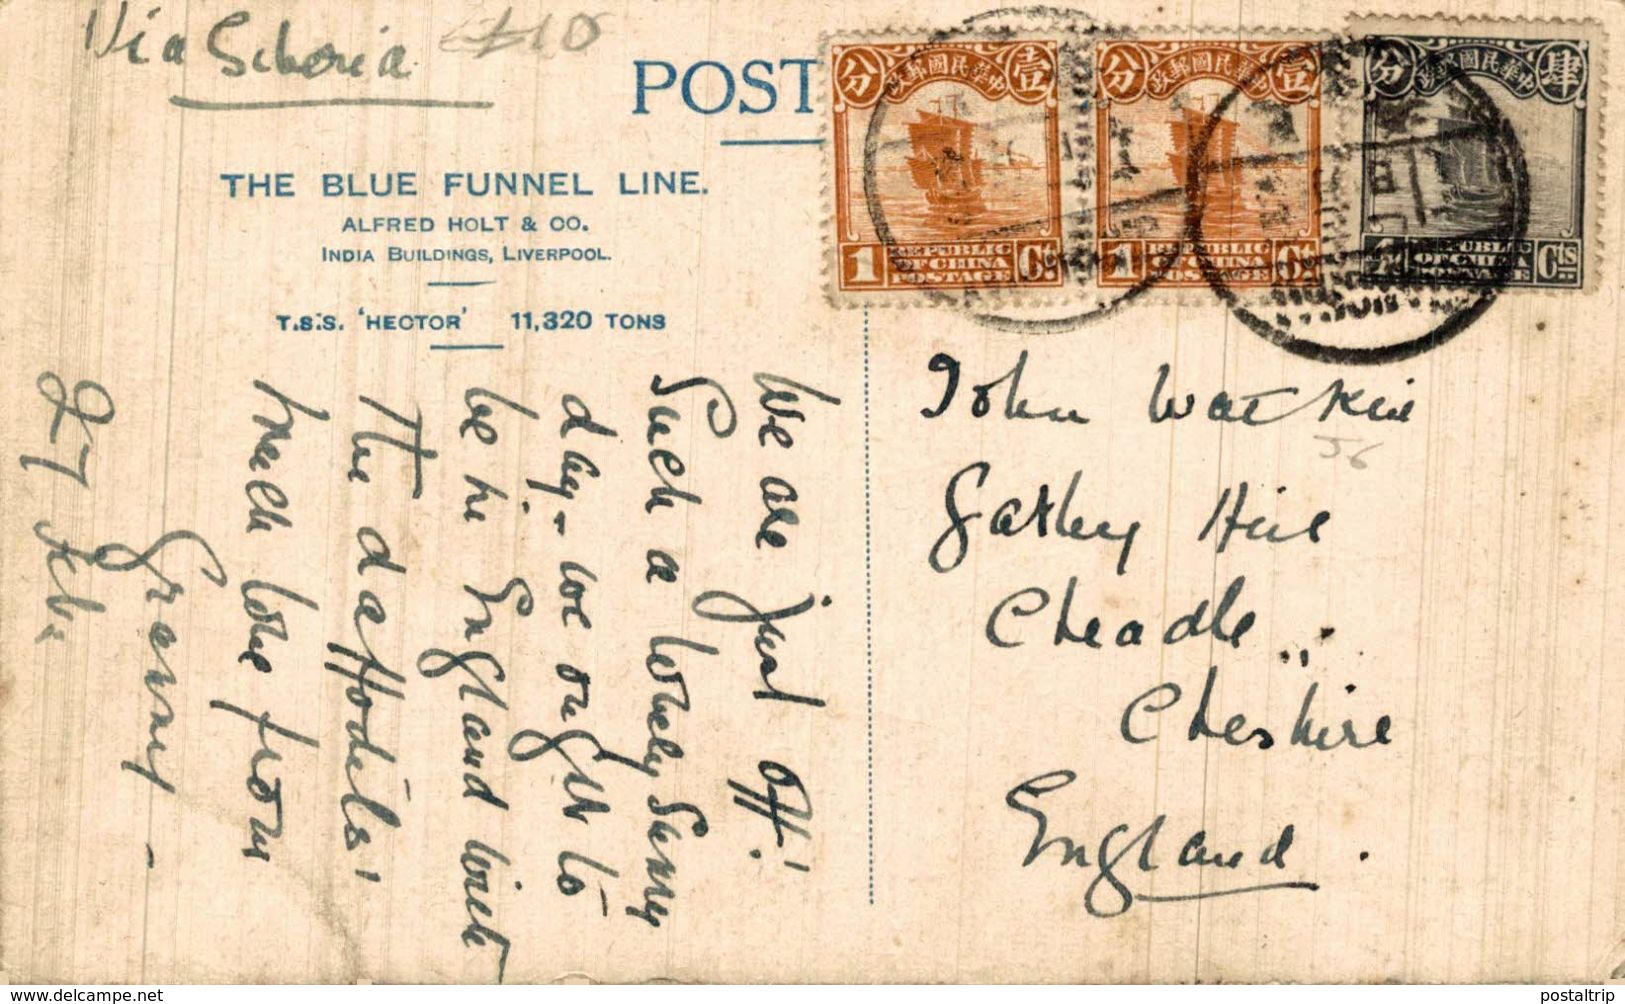 Via Siberia
£10
POST
THE BLUE FUNNEL LINE.
ALFRED HOLT & CO.
INDIA BUILDINGS, LIVERPOOL.
T.S.S. 'HECTOR' 11,320 TONS
中華民國郵政
壹 分
REPUBLIC
OF CHINA
POSTAGE
1 Ct.
中華民國郵政
壹 分
REPUBLIC
OF CHINA
POSTAGE
1 Ct.
中華民國郵政
肆 分
REPUBLIC
OF CHINA
POSTAGE
4 Cts
We are just off!
Such a lovely sunny
day - we ought to
be in England with
the daffodils!
Much love from
Granny -
27 Feb:
John Watkin
56
Gatley Hill
Cheadle,,
Cheshire
England.
www.delcampe.net
postaltrip